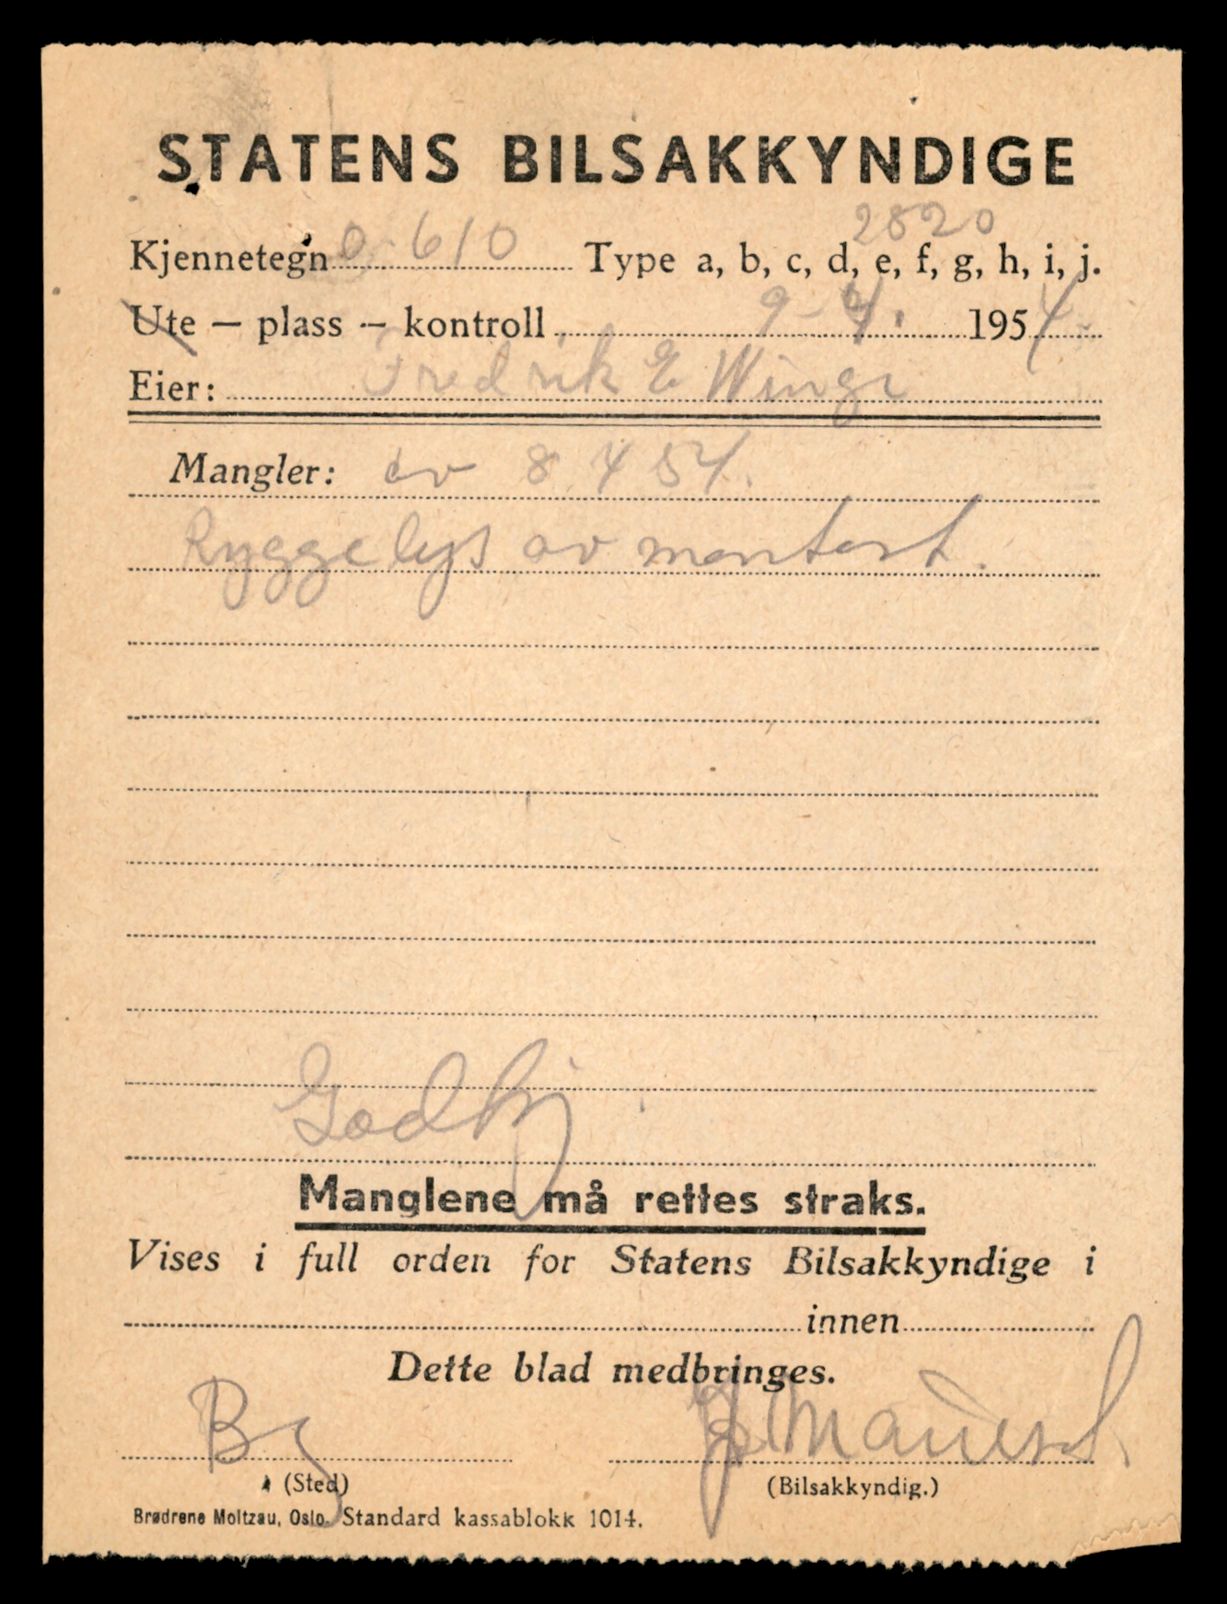 STATENS BILSAKKYNDIGE
2820
Kjennetegn O-610 Type a, b, c, d, e, f, g, h, i, j.
Ute — plass — kontroll 9-4. 1954.
Eier: Fredrik E Winge
Mangler: av 8 4 54.
Ryggelys av montert.
Godkj
Manglene må rettes straks.
Vises i full orden for Statens Bilsakkyndige i
innen
Dette blad medbringes.
(Sted) (Bilsakkyndig.)
Brødrene Moltzau, Oslo. Standard kassablokk 1014.